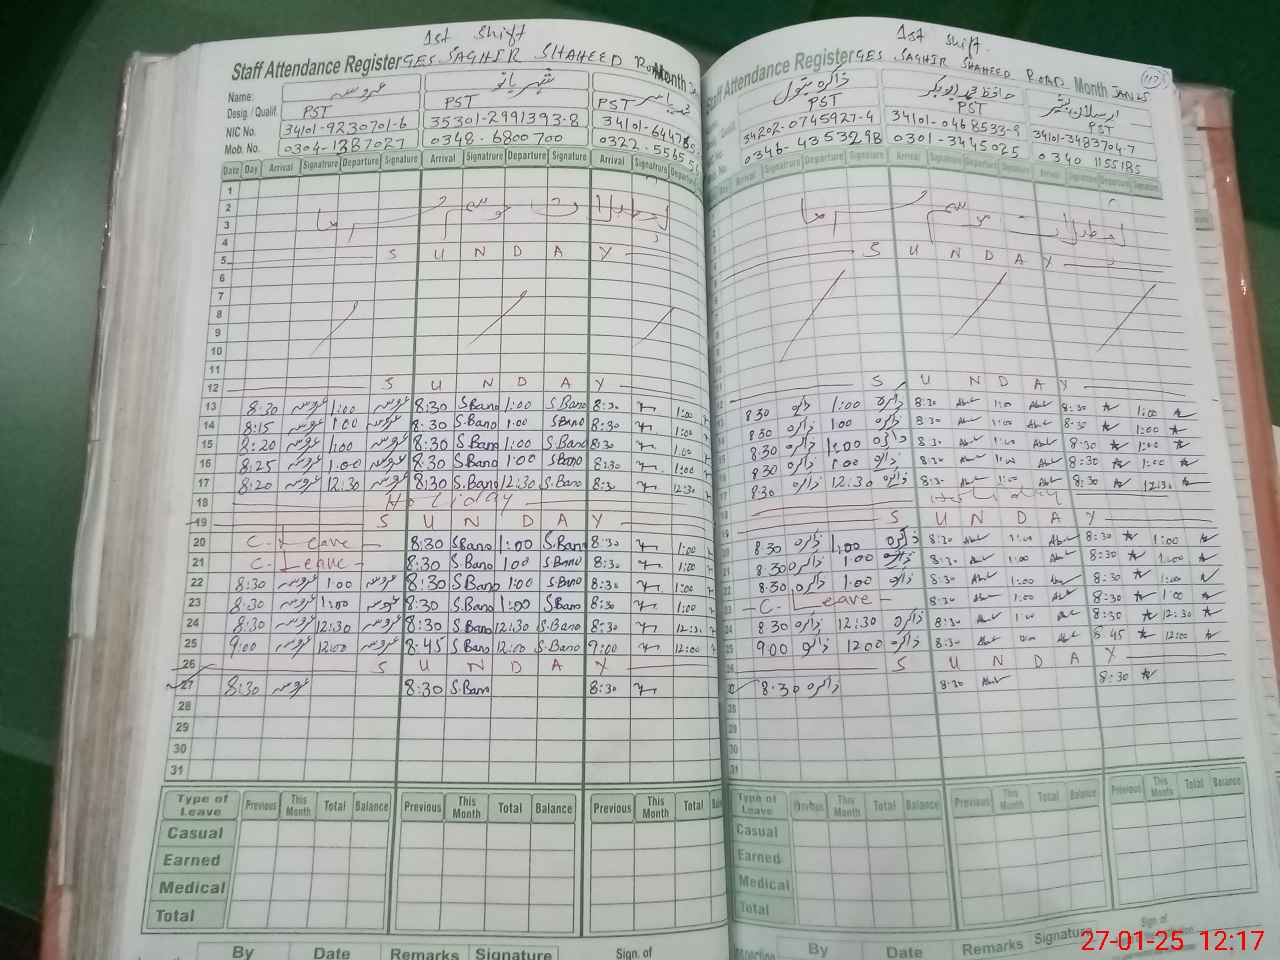 1st Shift
Staff Attendance Register GES SAGHIR SHAHEED ROAD Month
Name: عروسہ شہر بانو
Desig / Qualif. PST PST PST
NIC No. 34101-9230701-6 35301-2991393-8 34101-6447
Mob. No. 0304-1387027 0348-6800700 0322-5565
Date Day Arrival Signatrure Departure Signature Arrival Signatrure Departure Signature Arrival Signatrure Departure
1
2
3
4
5 S U N D A Y
6
7
8
9
10
11
12 S U N D A Y
13 8:30 عروسہ 1:00 عروسہ 8:30 S.Bano 1:00 S.Bano 8:30 1:00
14 8:15 عروسہ 1:00 عروسہ 8:30 S.Bano 1:00 S.Bano 8:30 1:00
15 8:20 عروسہ 1:00 عروسہ 8:30 S.Bano 1:00 S.Bano 8:30 1:00
16 8:25 عروسہ 1:00 عروسہ 8:30 S.Bano 1:00 S.Bano 8:30 1:00
17 8:20 عروسہ 12:30 عروسہ 8:30 S.Bano 12:30 S.Bano 8:30 12:30
18 Holiday
19 S U N D A Y
20 C. Leave 8:30 S.Bano 1:00 S.Bano 8:30 1:00
21 C. Leave 8:30 S.Bano 1:00 S.Bano 8:30 1:00
22 8:30 عروسہ 1:00 عروسہ 8:30 S.Bano 1:00 S.Bano 8:30 1:00
23 8:30 عروسہ 1:00 عروسہ 8:30 S.Bano 1:00 S.Bano 8:30 1:00
24 8:30 عروسہ 12:30 عروسہ 8:30 S.Bano 12:30 S.Bano 8:30 12:30
25 9:00 عروسہ 12:00 عروسہ 8:45 S.Bano 12:00 S.Bano 9:00 12:00
26 S U N D A Y
27 8:30 عروسہ 8:30 S.Bano 8:30
28
29
30
31
Type of Leave Previous This Month Total Balance Previous This Month Total Balance Previous This Month Total
Casual
Earned
Medical
Total
By Date Remarks Signature Sign. of
1st Shift.
Staff Attendance Register GES SAGHIR SHAHEED ROAD Month JAN25 117
ذاکرہ بتول حافظ محمد ابوبکر
PST PST PST
34202-0745927-4 34101-0468533-9 34101-3483704-7
0346-4353298 0301-3445025 0340 1155185
Arrival Signatrure Departure Signature Arrival Signatrure Departure Signature Arrival Signatrure Departure Signature
S U N D A Y
S U N D A Y
8:30 ذاکرہ 1:00 ذاکرہ 8:30 1:00 8:30 1:00
8:30 ذاکرہ 1:00 ذاکرہ 8:30 1:00 8:30 1:00
8:30 ذاکرہ 1:00 ذاکرہ 8:30 1:00 8:30 1:00
8:30 ذاکرہ 1:00 ذاکرہ 8:30 1:00 8:30 1:00
8:30 ذاکرہ 12:30 ذاکرہ 8:30 8:30 12:30
Holiday
S U N D A Y
8:30 ذاکرہ 1:00 ذاکرہ 8:30 1:00 8:30 1:00
8:30 ذاکرہ 1:00 ذاکرہ 8:30 1:00 8:30 1:00
8:30 ذاکرہ 1:00 ذاکرہ 8:30 1:00 8:30 1:00
C. Leave 8:30 1:00 8:30 1:00
8:30 ذاکرہ 12:30 ذاکرہ 8:30 8:30 12:30
9:00 ذاکرہ 12:00 ذاکرہ 8:30 8:45 12:00
S U N D A Y
8:30 ذاکرہ 8:30 8:30
28
29
30
31
Type of Leave Previous This Month Total Balance Previous This Month Total Balance Previous This Month Total Balance
Casual
Earned
Medical
Total
By Date Remarks Signature Sign. of
27-01-25 12:17